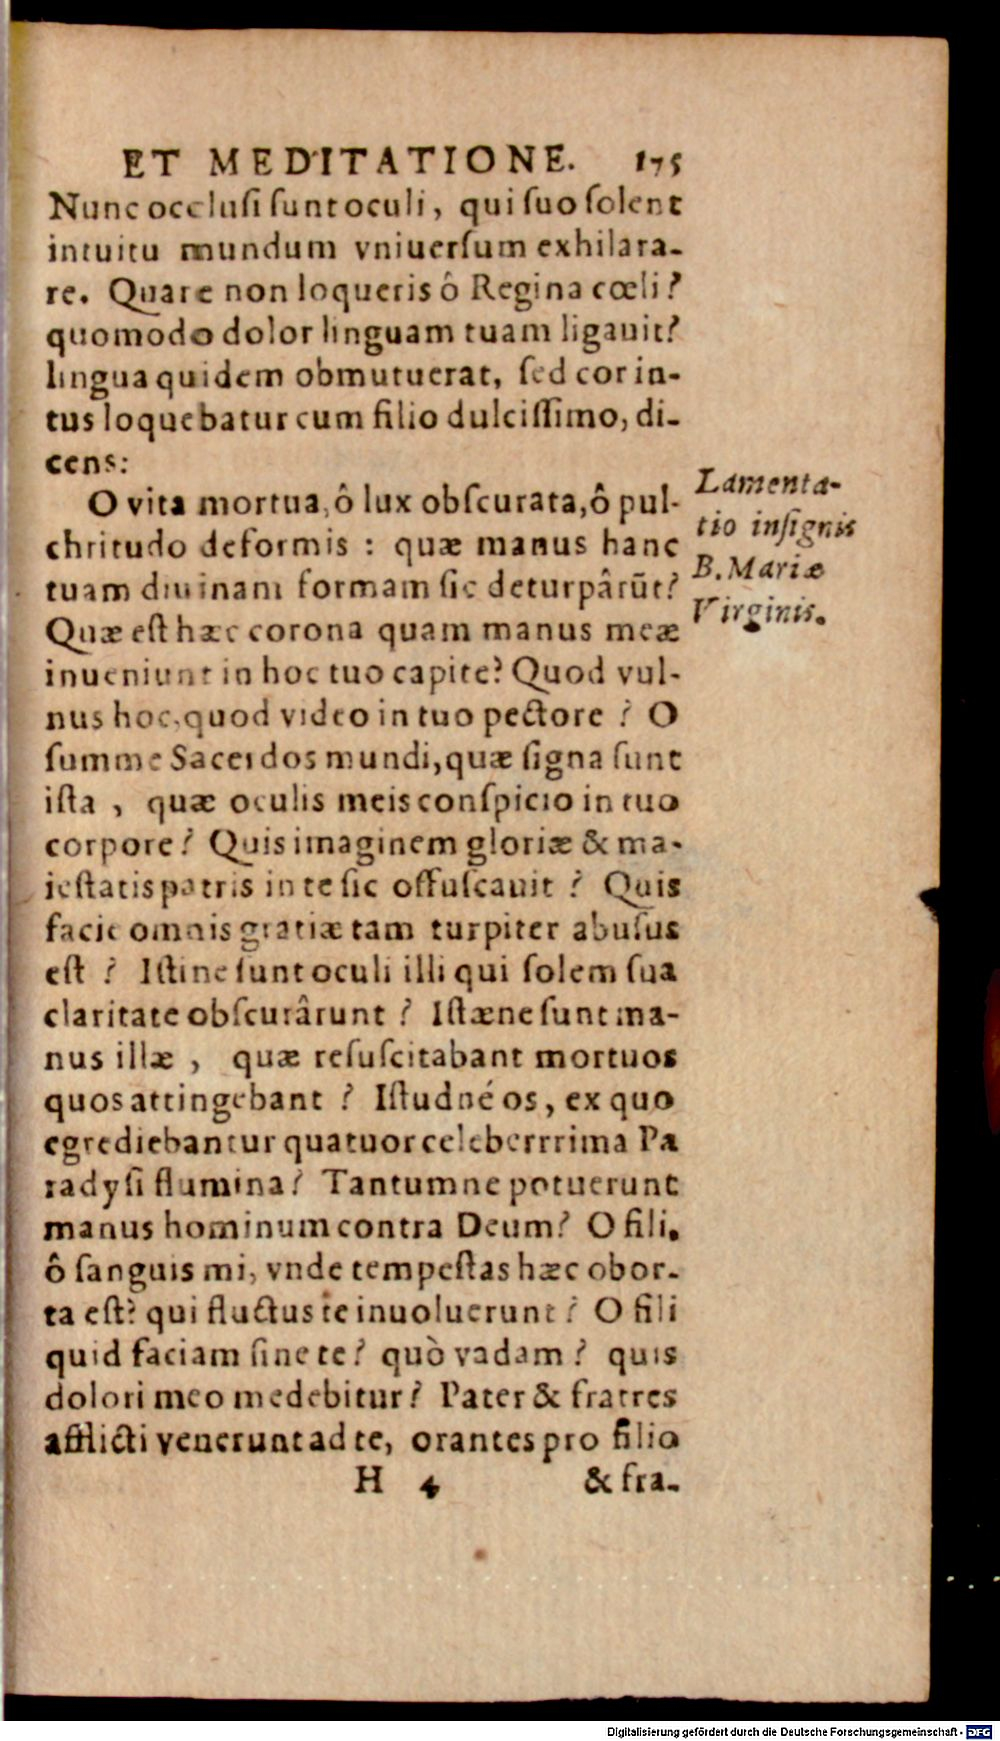 ET MEDITATIONE. 175
Nunc occlusi sunt oculi, qui suo solent
intuitu mundum vniuersum exhilara-
re. Quare non loqueris ô Regina cœli?
quomodo dolor linguam tuam ligauit?
lingua quidem obmutuerat, sed cor in-
tus loquebatur cum filio dulcissimo, di-
cens:
O vita mortua, ô lux obscurata, ô pul-
chritudo deformis : quæ manus hanc
tuam diuinam formam sic deturpârūt?
Quæ est hæc corona quam manus meæ
inueniunt in hoc tuo capite? Quod vul-
nus hoc, quod video in tuo pectore ? O
summe Sacerdos mundi, quæ signa sunt
ista , quæ oculis meis conspicio in tuo
corpore? Quis imaginem gloriæ & ma-
iestatis patris in te sic offuscauit ? Quis
facie omnis gratiæ tam turpiter abusus
est ? Istine sunt oculi illi qui solem sua
claritate obscurârunt ? Istæne sunt ma-
nus illæ , quæ resuscitabant mortuos
quos attingebant ? Istudné os, ex quo
egrediebantur quatuor celeberrrima Pa
radysi flumina? Tantumne potuerunt
manus hominum contra Deum? O fili.
ô sanguis mi, vnde tempestas hæc obor-
ta est? qui fluctus te inuoluerunt ? O fili
quid faciam sine te? quò vadam ? quis
dolori meo medebitur? Pater & fratres
afflicti venerunt ad te, orantes pro filio
H 4 & fra-
Lamenta-
tio insignis
B. Mariæ
Virginis.
Digitalisierung gefördert durch die Deutsche Forschungsgemeinschaft - DFG